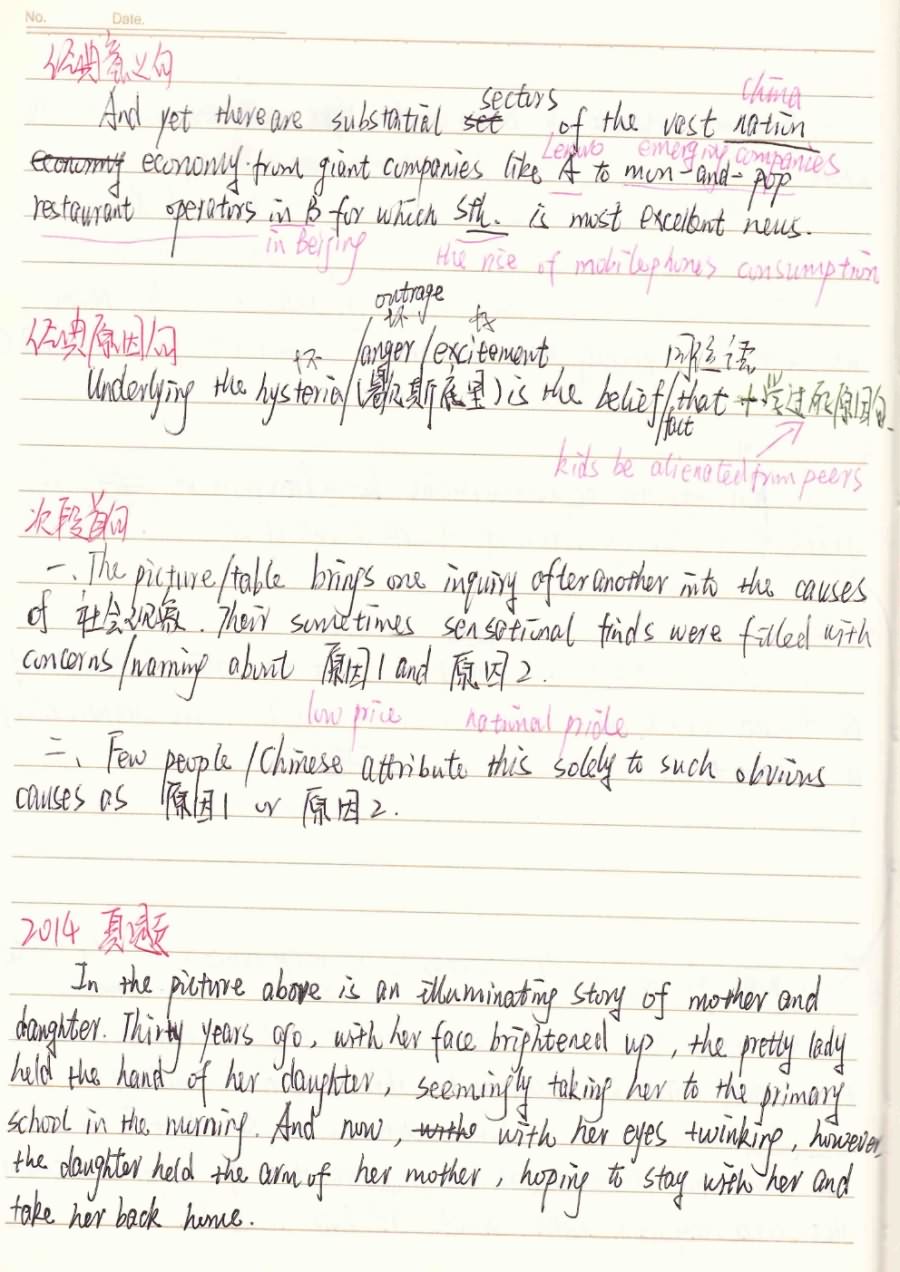 No. Date.
经典意义句
China
sectors
And yet there are substatial of the vast nation
Lenovo emerging companies
economy economy from giant companies like A to mom-and-pop
restaurant operators in B for which Sth. is most excellent news.
in Beijing the rise of mobilephones consumption
outrage
坏
经典原因句 坏 /anger/excitement 同位语
Underlying the hysteria/(歇斯底里) is the belief/that + 学过的原因句.
/fact
kids be alienated from peers
次段首句
一、The picture/table brings one inquiry after another into the causes
of 社会现象. Their sometimes sensational finds were filled with
concerns/naming about 原因1 and 原因2.
low price national pride
二、Few people/Chinese attribute this solely to such obvious
causes as 原因1 or 原因2.
2014 真题
In the picture above is an illuminating story of mother and
daughter. Thirty years ago, with her face brightened up, the pretty lady
held the hand of her daughter, seemingly taking her to the primary
school in the morning. And now, with her eyes twinking, however,
the daughter held the arm of her mother, hoping to stay with her and
take her back home.